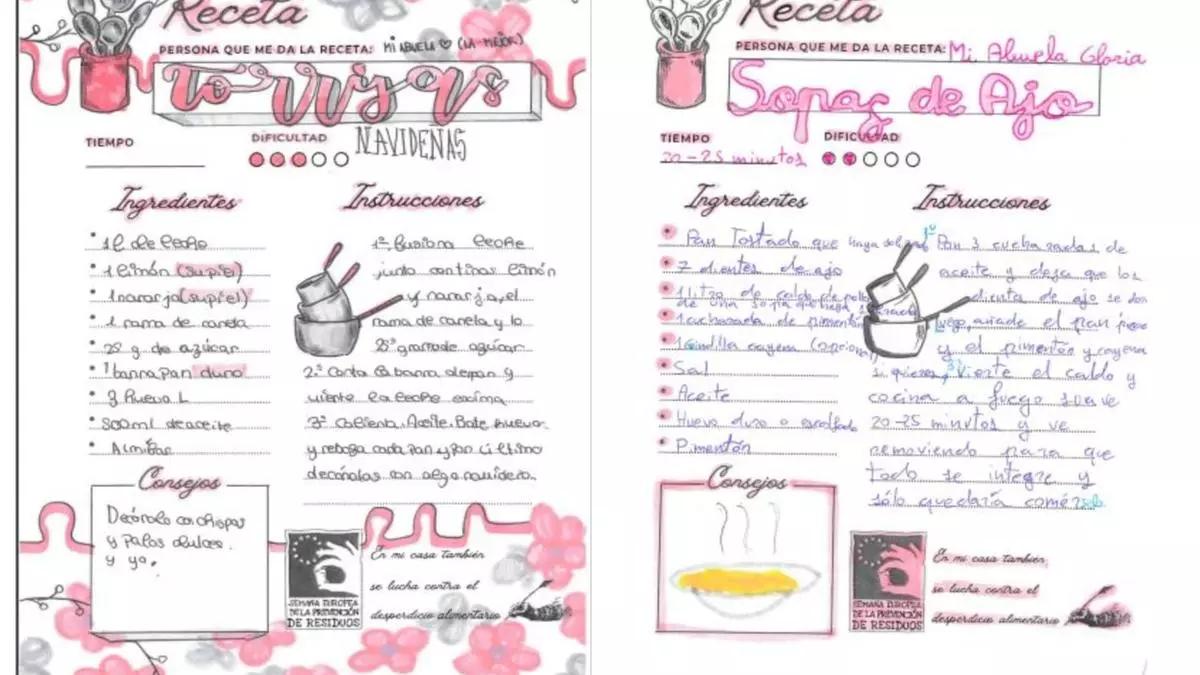 Receta
PERSONA QUE ME DA LA RECETA: MI ABUELA ♡ (LA MEJOR)
TORRIJAS
NAVIDEÑAS
TIEMPO
DIFICULTAD
Ingredientes
1 l de leche
1 limón (su piel)
1 naranja (su piel)
1 rama de canela
g de azúcar
1 barra pan duro
3 Huevo L
300 ml de aceite
Almíbar
Instrucciones
1º fusiona leche
junto con tiras limón
y naranja, el
rama de canela y lo
gramo de azúcar
2º Corta la barra de pan y
vierte la leche encima
3º Calienta Aceite, Bate huevo
y reboza cada pan y por último
decóralos con algo navideño.
Consejos
Decóralo con chispas
y palos dulces
y ya.
SEMANA EUROPEA
DE LA PREVENCIÓN
DE RESIDUOS
En mi casa también
se lucha contra el
desperdicio alimentario
Receta
PERSONA QUE ME DA LA RECETA: Mi Abuela Gloria
Sopas de Ajo
TIEMPO
20-25 minutos
DIFICULTAD
Ingredientes
Pan Tostado que haya
7 dientes de ajo
1 litro de caldo de pollo
de una sopa que haya
1 cucharada de pimentón
1 Guindilla cayena (opcional)
Sal
Aceite
Huevo duro o escalfado
Pimentón
Instrucciones
1º Pon 3 cucharadas de
aceite y deja que los
diente de ajo se
luego, añade el pan
y el pimentón y cayena
si quieres, 3º Vierte el caldo y
cocina a fuego suave
20-25 minutos y ve
removiendo para que
todo se integre y
sólo quedaría comér
Consejos
SEMANA EUROPEA
DE LA PREVENCIÓN
DE RESIDUOS
En mi casa también
se lucha contra el
desperdicio alimentario